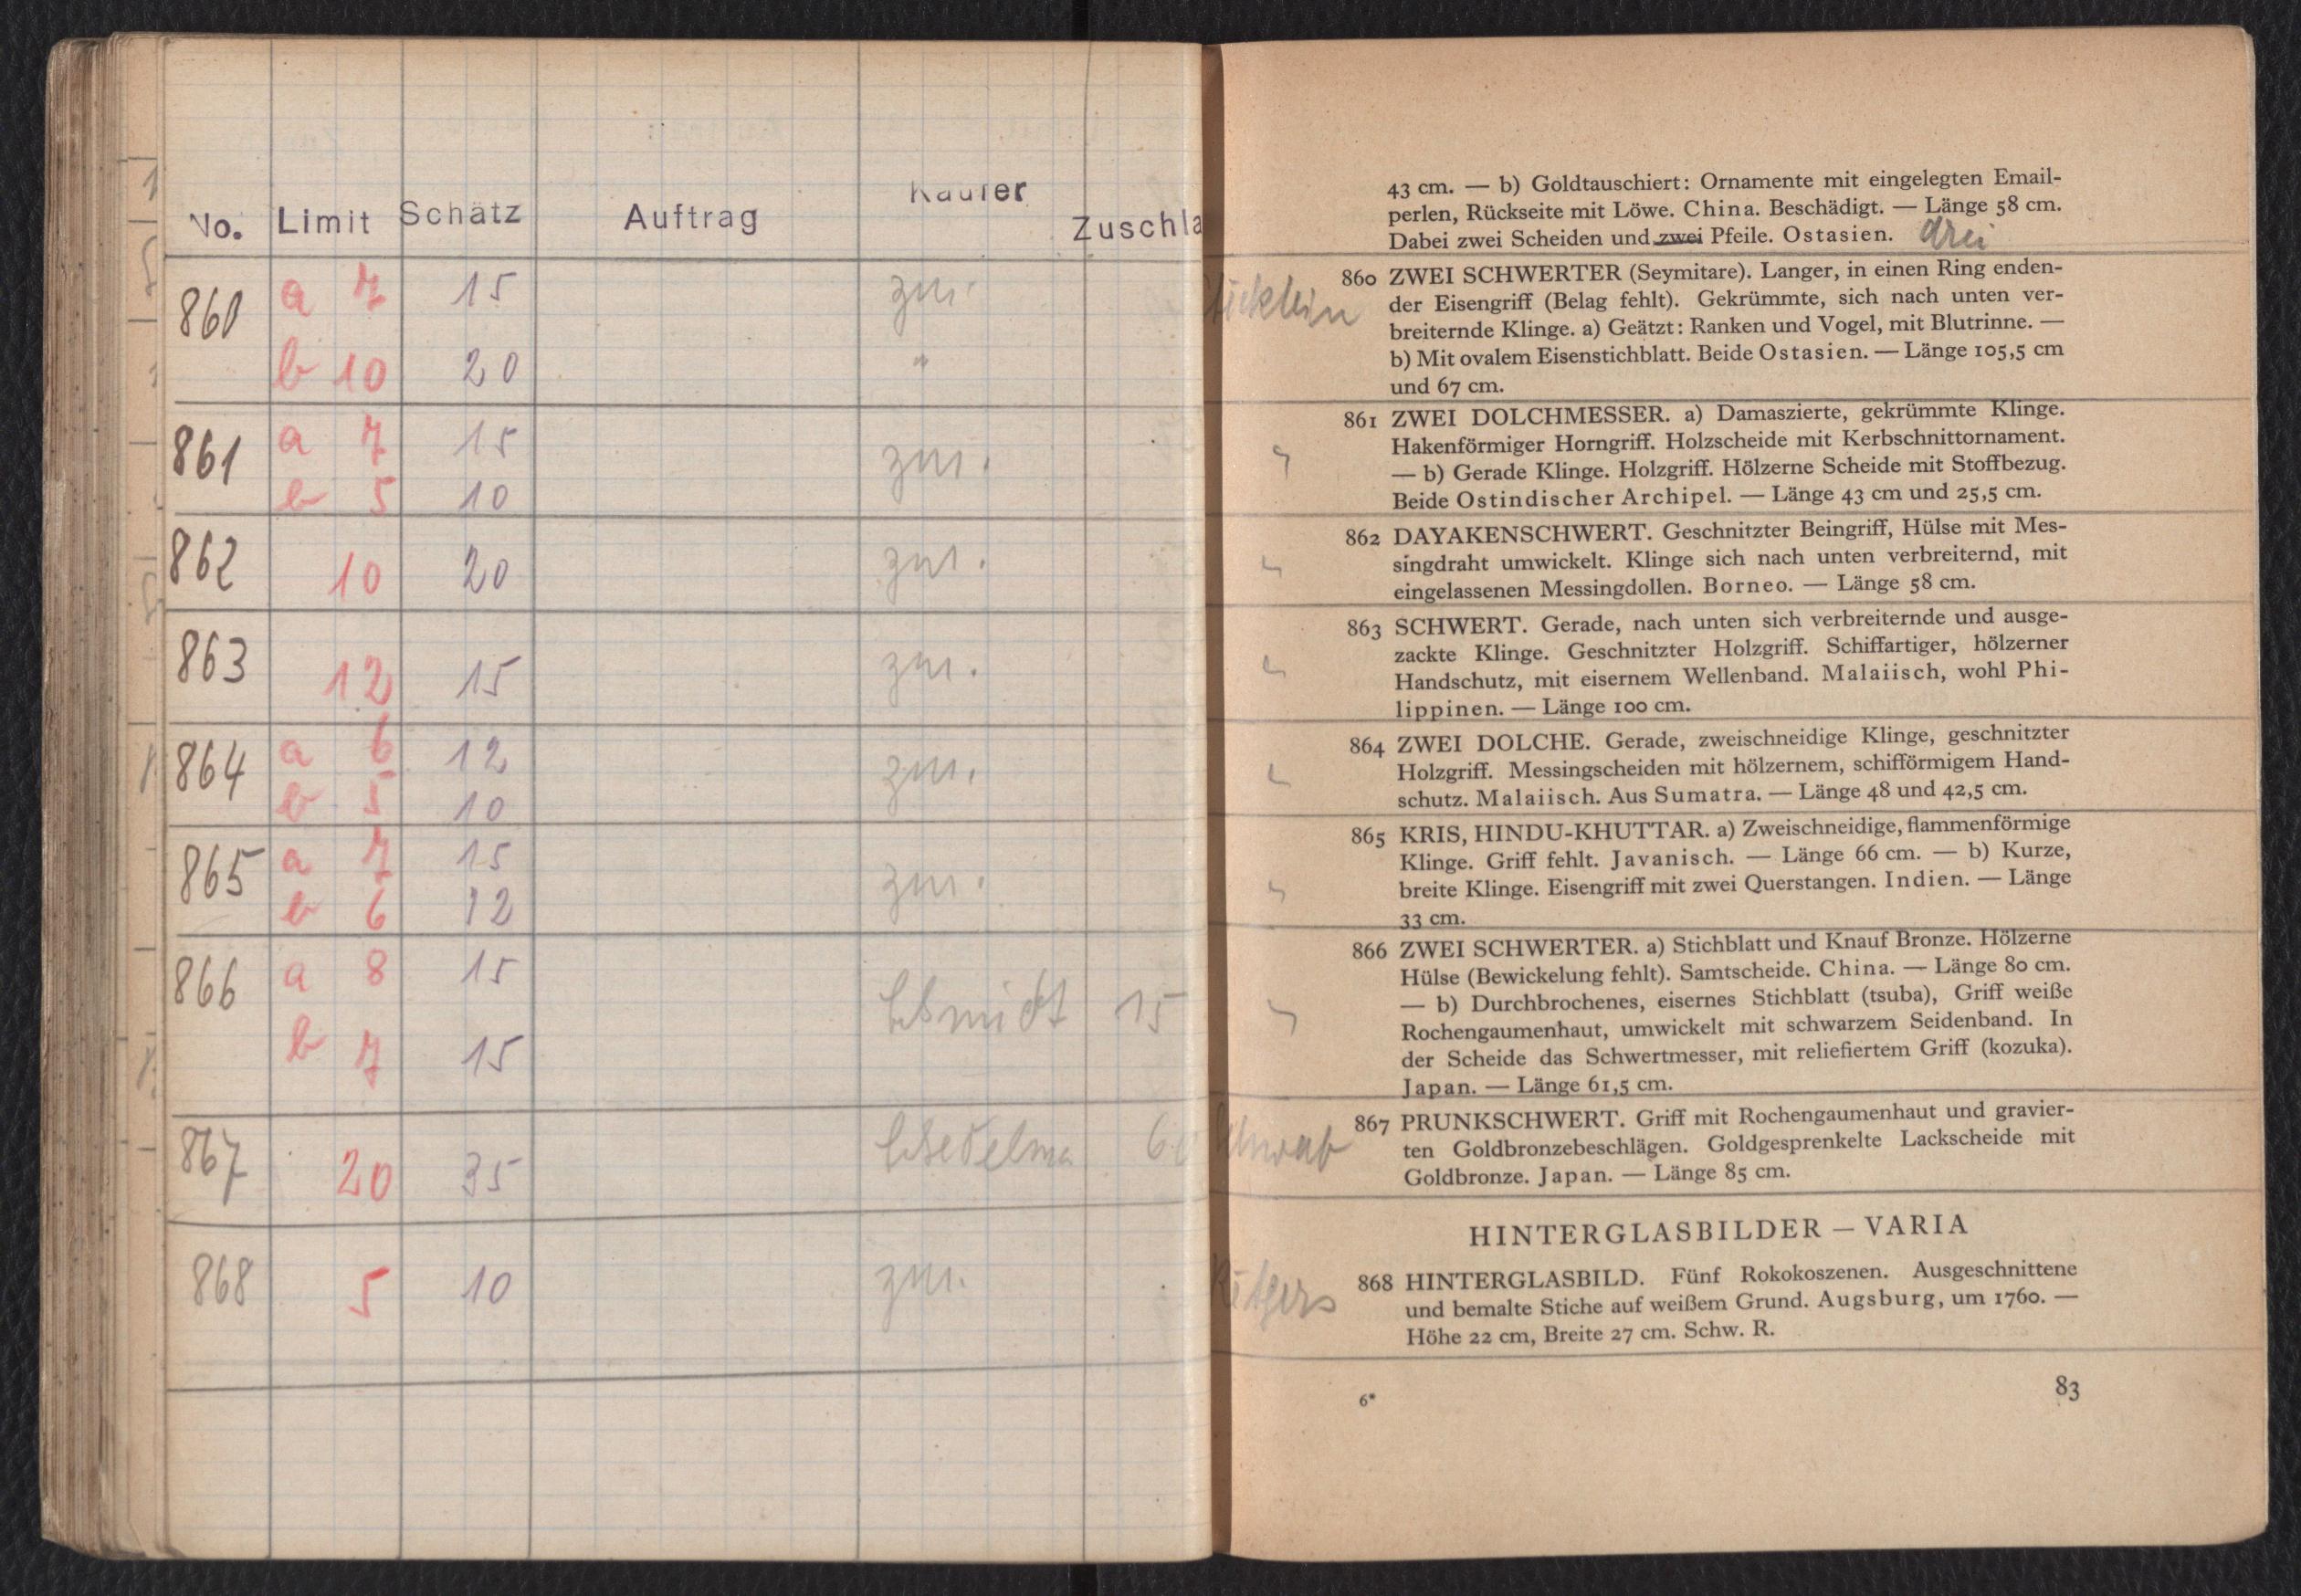 No. Limit Schätz Auftrag Käufer Zuschla
860 a 7 15 zur.
b 10 20 "
861 a 7 15 zur.
b 5 10
862 10 20 zur.
863 12 15 zur.
864 a 6 12 zur.
b 5 10
865 a 7 15 zur.
b 6 12
866 a 8 15
Schmidt 15
b 7 15
867 20 35
868 5 10 zur.
43 cm. — b) Goldtauschiert: Ornamente mit eingelegten Email-
perlen, Rückseite mit Löwe. China. Beschädigt. — Länge 58 cm.
Dabei zwei Scheiden und zwei Pfeile. Ostasien. drei
860 ZWEI SCHWERTER (Seymitare). Langer, in einen Ring enden-
der Eisengriff (Belag fehlt). Gekrümmte, sich nach unten ver-
breiternde Klinge. a) Geätzt: Ranken und Vogel, mit Blutrinne. —
b) Mit ovalem Eisenstichblatt. Beide Ostasien. — Länge 105,5 cm
und 67 cm.
861 ZWEI DOLCHMESSER. a) Damaszierte, gekrümmte Klinge.
Hakenförmiger Horngriff. Holzscheide mit Kerbschnittornament.
— b) Gerade Klinge. Holzgriff. Hölzerne Scheide mit Stoffbezug.
Beide Ostindischer Archipel. — Länge 43 cm und 25,5 cm.
862 DAYAKENSCHWERT. Geschnitzter Beingriff, Hülse mit Mes-
singdraht umwickelt. Klinge sich nach unten verbreiternd, mit
eingelassenen Messingdollen. Borneo. — Länge 58 cm.
863 SCHWERT. Gerade, nach unten sich verbreiternde und ausge-
zackte Klinge. Geschnitzter Holzgriff. Schiffartiger, hölzerner
Handschutz, mit eisernem Wellenband. Malaiisch, wohl Phi-
lippinen. — Länge 100 cm.
864 ZWEI DOLCHE. Gerade, zweischneidige Klinge, geschnitzter
Holzgriff. Messingscheiden mit hölzernem, schifförmigem Hand-
schutz. Malaiisch. Aus Sumatra. — Länge 48 und 42,5 cm.
865 KRIS, HINDU-KHUTTAR. a) Zweischneidige, flammenförmige
Klinge. Griff fehlt. Javanisch. — Länge 66 cm. — b) Kurze,
breite Klinge. Eisengriff mit zwei Querstangen. Indien. — Länge
33 cm.
866 ZWEI SCHWERTER. a) Stichblatt und Knauf Bronze. Hölzerne
Hülse (Bewickelung fehlt). Samtscheide. China. — Länge 80 cm.
— b) Durchbrochenes, eisernes Stichblatt (tsuba), Griff weiße
Rochengaumenhaut, umwickelt mit schwarzem Seidenband. In
der Scheide das Schwertmesser, mit reliefiertem Griff (kozuka).
Japan. — Länge 61,5 cm.
867 PRUNKSCHWERT. Griff mit Rochengaumenhaut und gravier-
ten Goldbronzebeschlägen. Goldgesprenkelte Lackscheide mit
Goldbronze. Japan. — Länge 85 cm.
HINTERGLASBILDER — VARIA
868 HINTERGLASBILD. Fünf Rokokoszenen. Ausgeschnittene
und bemalte Stiche auf weißem Grund. Augsburg, um 1760. —
Höhe 22 cm, Breite 27 cm. Schw. R.
6*
83